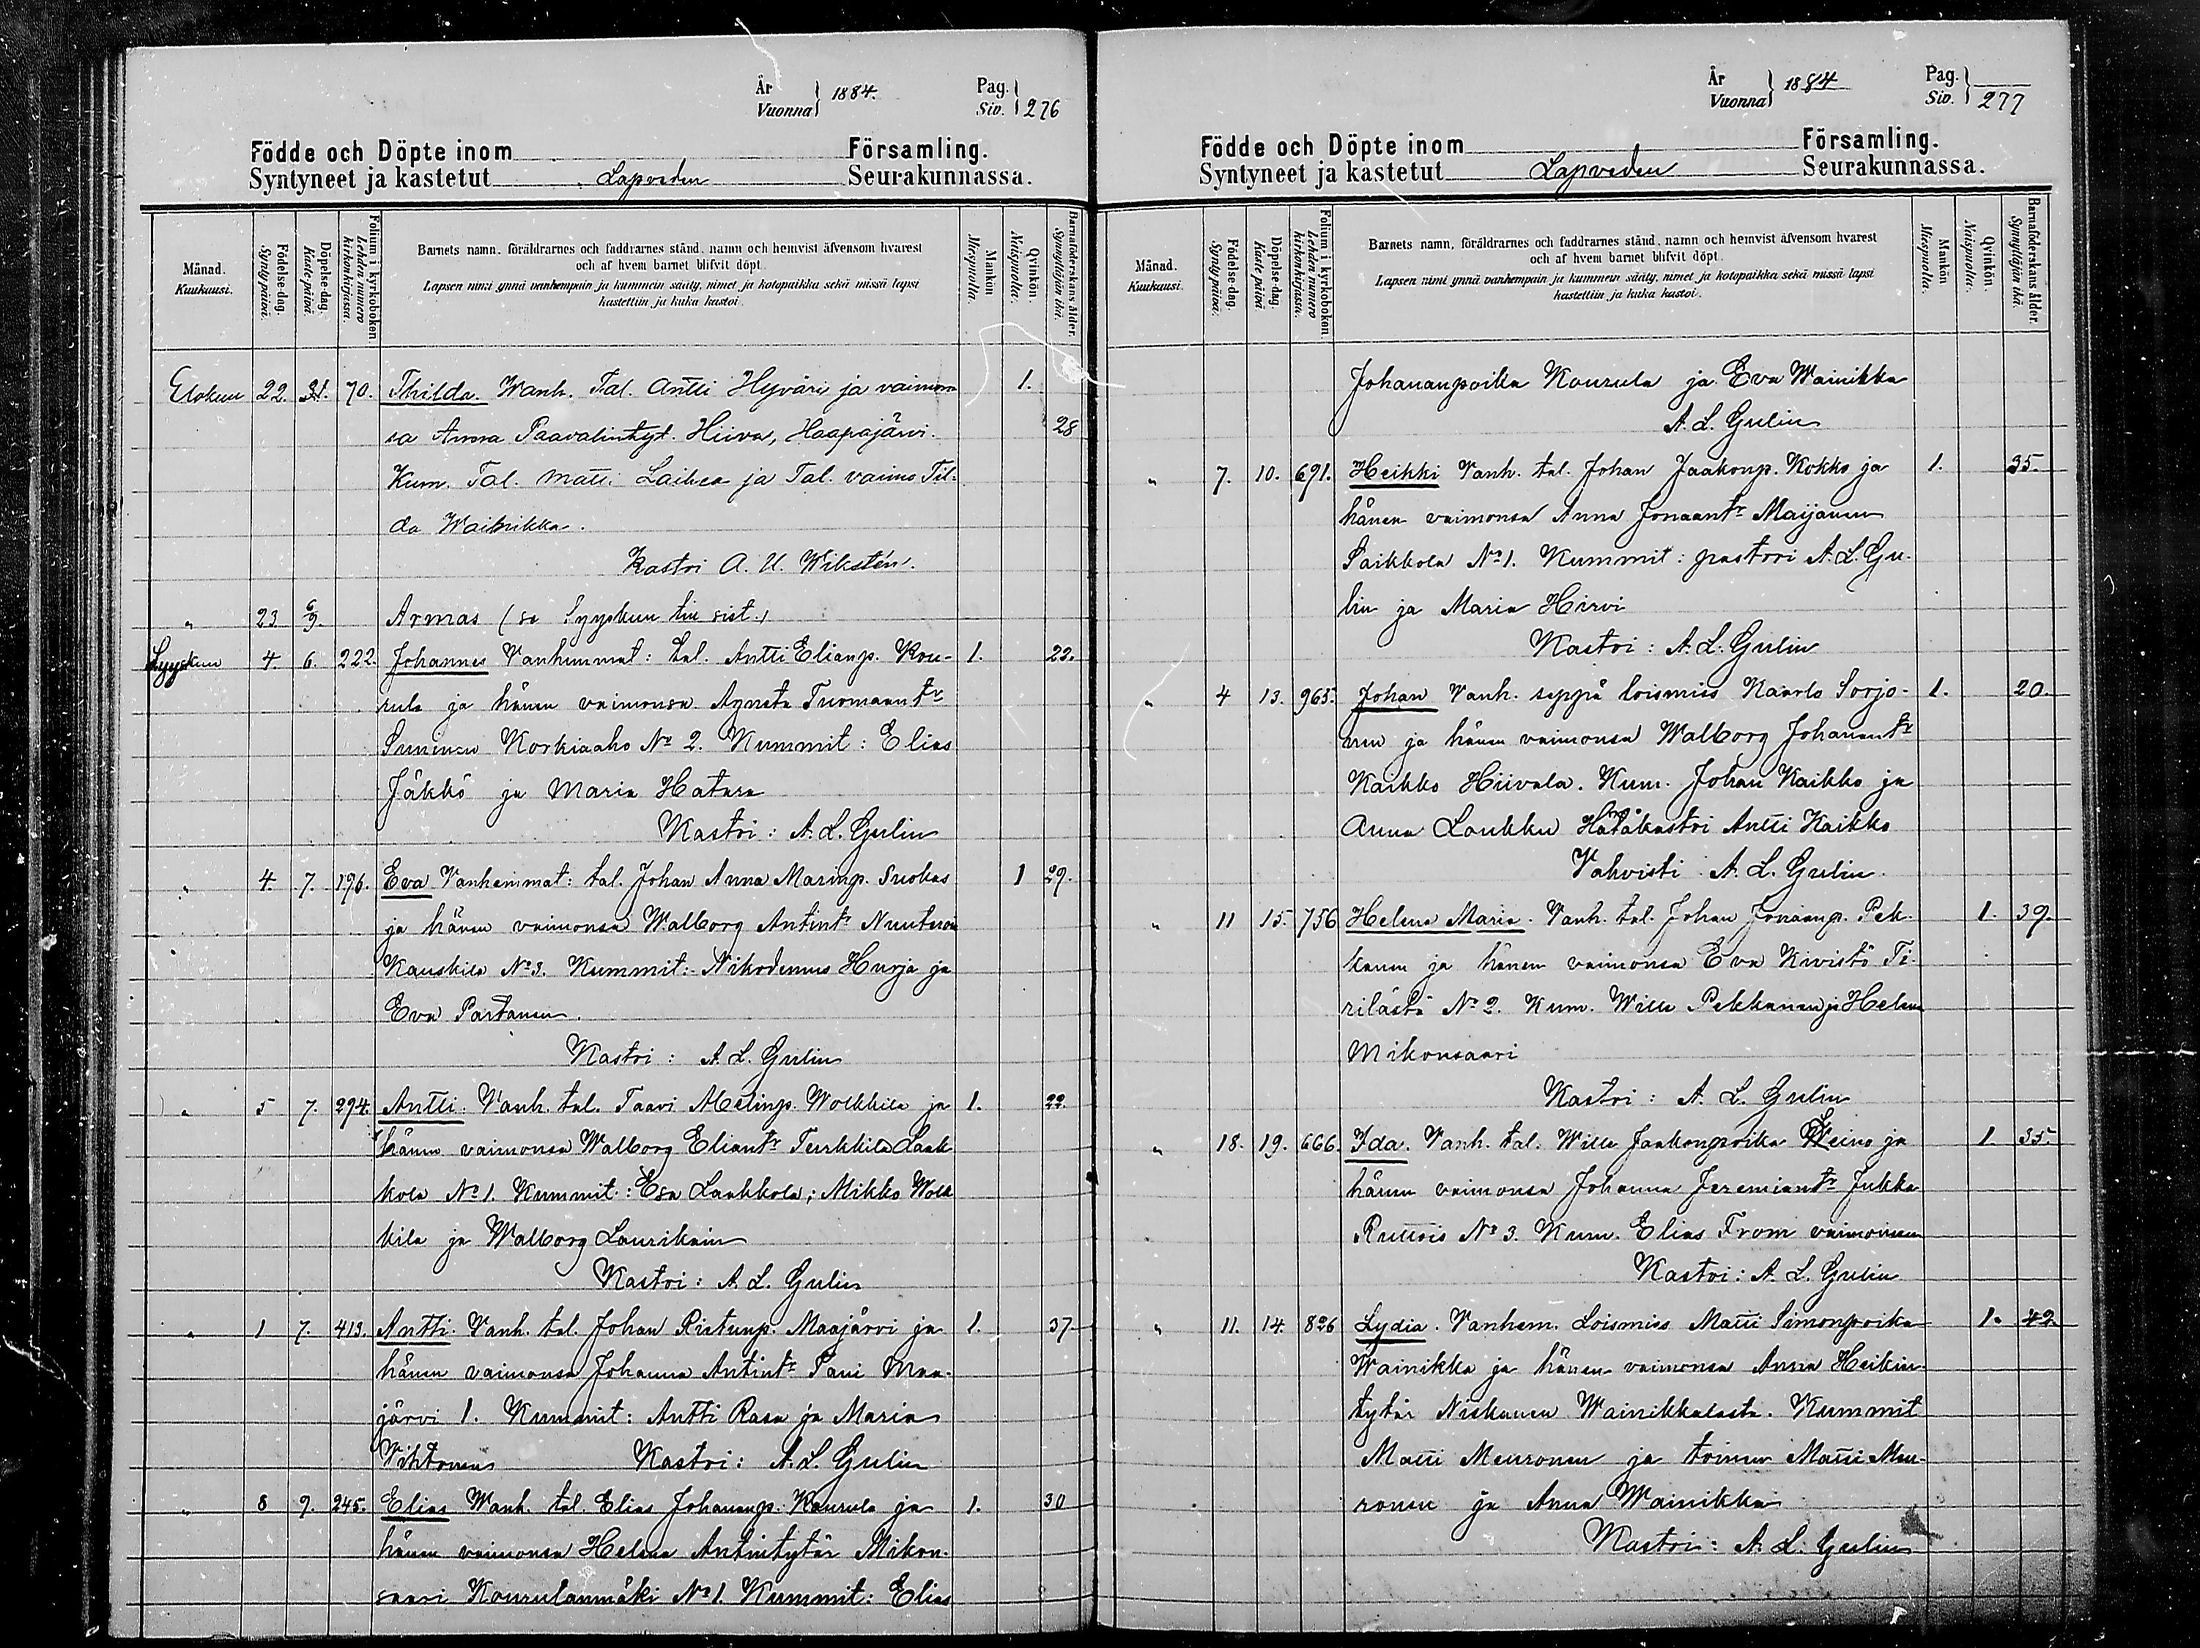 År
Vuonna } 1884.
Pag.
Siv. } 276
Födde och Döpte inom Församling.
Syntyneet ja kastetut Lapveden Seurakunnassa.
Månad.
Kuukausi.
Födelse-dag.
Syntypäivä.
Döpelse-dag.
Kaste päivä
Folium i kyrkoboken
Lehden numero
kirkonkirjassa.
Barnets namn, föräldrarnes och faddrarnes stånd, namn och hemvist äfvensom hvarest
och af hvem barnet blifvit döpt.
Lapsen nimi ynnä vanhempain ja kummein sääty, nimet ja kotopaikka sekä missä lapsi
kastettiin ja kuka kastoi.
Mankön
Miespuolia.
Qvinkön.
Naispuolia.
Barnaföderskans ålder.
Synnyttäjän ikä.
Elokuu 22. 31. 70. Thilda. Wanh. Tal. Antti Hyväri ja vaimon 1.
sa Anna Paavalintyt. Hiiva, Haapajärvi. 28
Kum. Tal. Matti Laihia ja Tal. vaimo Til-
da Wainikka.
Kastoi A. U. Wikstén.
" 23 6/9. Armas (se Syyskuu sist.)
Syyskuu 4. 6. 222. Johannes Vanhemmat: tal. Antti Elianp. Kou- 1. 22.
rula ja hänen vaimonsa Agneta Tuomaantr
Suninen Korkiaaho No 2. Kummit: Elias
Jäkkö ja Maria Hatara
Kastoi: A. L. Gulin
" 4. 7. 196. Eva Vanhemmat: tal. Johan Anna Marinp. Suokas 1 29.
ja hänen vaimonsa Walborg Antintr Nuutinen
Kauskila No 3. Kummit: Nikodemus Hurja ja
Eva Partanen.
Kastoi: A. L. Gulin
" 5 7. 294. Antti. Vanh. tal. Taavi Abelinp. Wolkkila ja 1. 22.
hänen vaimonsa Walborg Eliantr Turkkila Laak
kola No 1. Kummit: Esa Laakkola; Mikko Wolk
kila ja Walborg Laurikain
Kastoi: A. L. Gulin
" 1 7. 413. Antti. Vanh. tal. Johan Ristunp. Maajärvi ja 1. 37
hänen vaimonsa Johanna Antintr Pani Maa-
järvi 1. Kummit: Antti Rasa ja Maria
Wihtonen Kastoi: A. L. Gulin
" 8 9. 245. Elias Wanh. tal. Elias Johananp. Kourula ja 1. 30
hänen vaimonsa Helena Antintytär Mikon-
saari Kourulanmäki No 1. Kummit: Elias
År
Vuonna } 1884
Pag.
Siv. } 277
Födde och Döpte inom Församling.
Syntyneet ja kastetut Lapveden Seurakunnassa.
Månad.
Kuukausi.
Födelse-dag.
Syntypäivä.
Döpelse-dag.
Kaste päivä
Folium i kyrkoboken
Lehden numero
kirkonkirjassa.
Barnets namn, föräldrarnes och faddrarnes stånd, namn och hemvist äfvensom hvarest
och af hvem barnet blifvit döpt.
Lapsen nimi ynnä vanhempain ja kummein sääty, nimet ja kotopaikka sekä missä lapsi
kastettiin ja kuka kastoi.
Mankön
Miespuolia.
Qvinkön.
Naispuolia.
Barnaföderskans ålder.
Synnyttäjän ikä.
Johananpoika Kourula ja Eva Wainikka
A. L. Gulin
" 7. 10. 691. Heikki Vanh. tal. Johan Jaakonp. Kokko ja 1. 35.
hänen vaimonsa Anna Jonaantr Maijanen
Saikkola No 1. Kummit: pastori A. L. Gu-
lin ja Maria Hirvi
Kastoi: A. L. Gulin
" 4 13. 965. Johan Vanh. seppä loismies Kaarlo Sorjo- 1. 20.
nen ja hänen vaimonsa Walborg Johanantr
Kaikko Hiivala. Kum. Johan Kaikko ja
Anna Loukku Hätäkastoi Antti Kaikko
Vahvisti A. L. Gulin.
" 11 15. 756 Helena Maria. Vanh. tal. Johan Jonaanp. Pek- 1. 39.
kanen ja hänen vaimonsa Eva Kivistö Ti-
rilästä No 2. Kum. Wille Pekkanen ja Helena
Mikonsaari
Kastoi: A. L. Gulin
" 18. 19. 666. Ida. Vanh. tal. Wille Jaakonpoika Heino ja 1. 35.
hänen vaimonsa Johanna Jeremiantr Jukka
Ruttois No 3. Kum. Elias From vaimoineen
Kastoi: A. L. Gulin
" 11. 14. 826 Lydia. Vanhem. Loismies Matti Simonpoika 1. 42.
Wainikka ja hänen vaimonsa Anna Heikin-
tytär Niskanen Wainikkalasta. Kummit
Matti Meuronen ja toinen Matti Meu-
ronen ja Anna Wainikka
Kastoi: A. L. Gulin